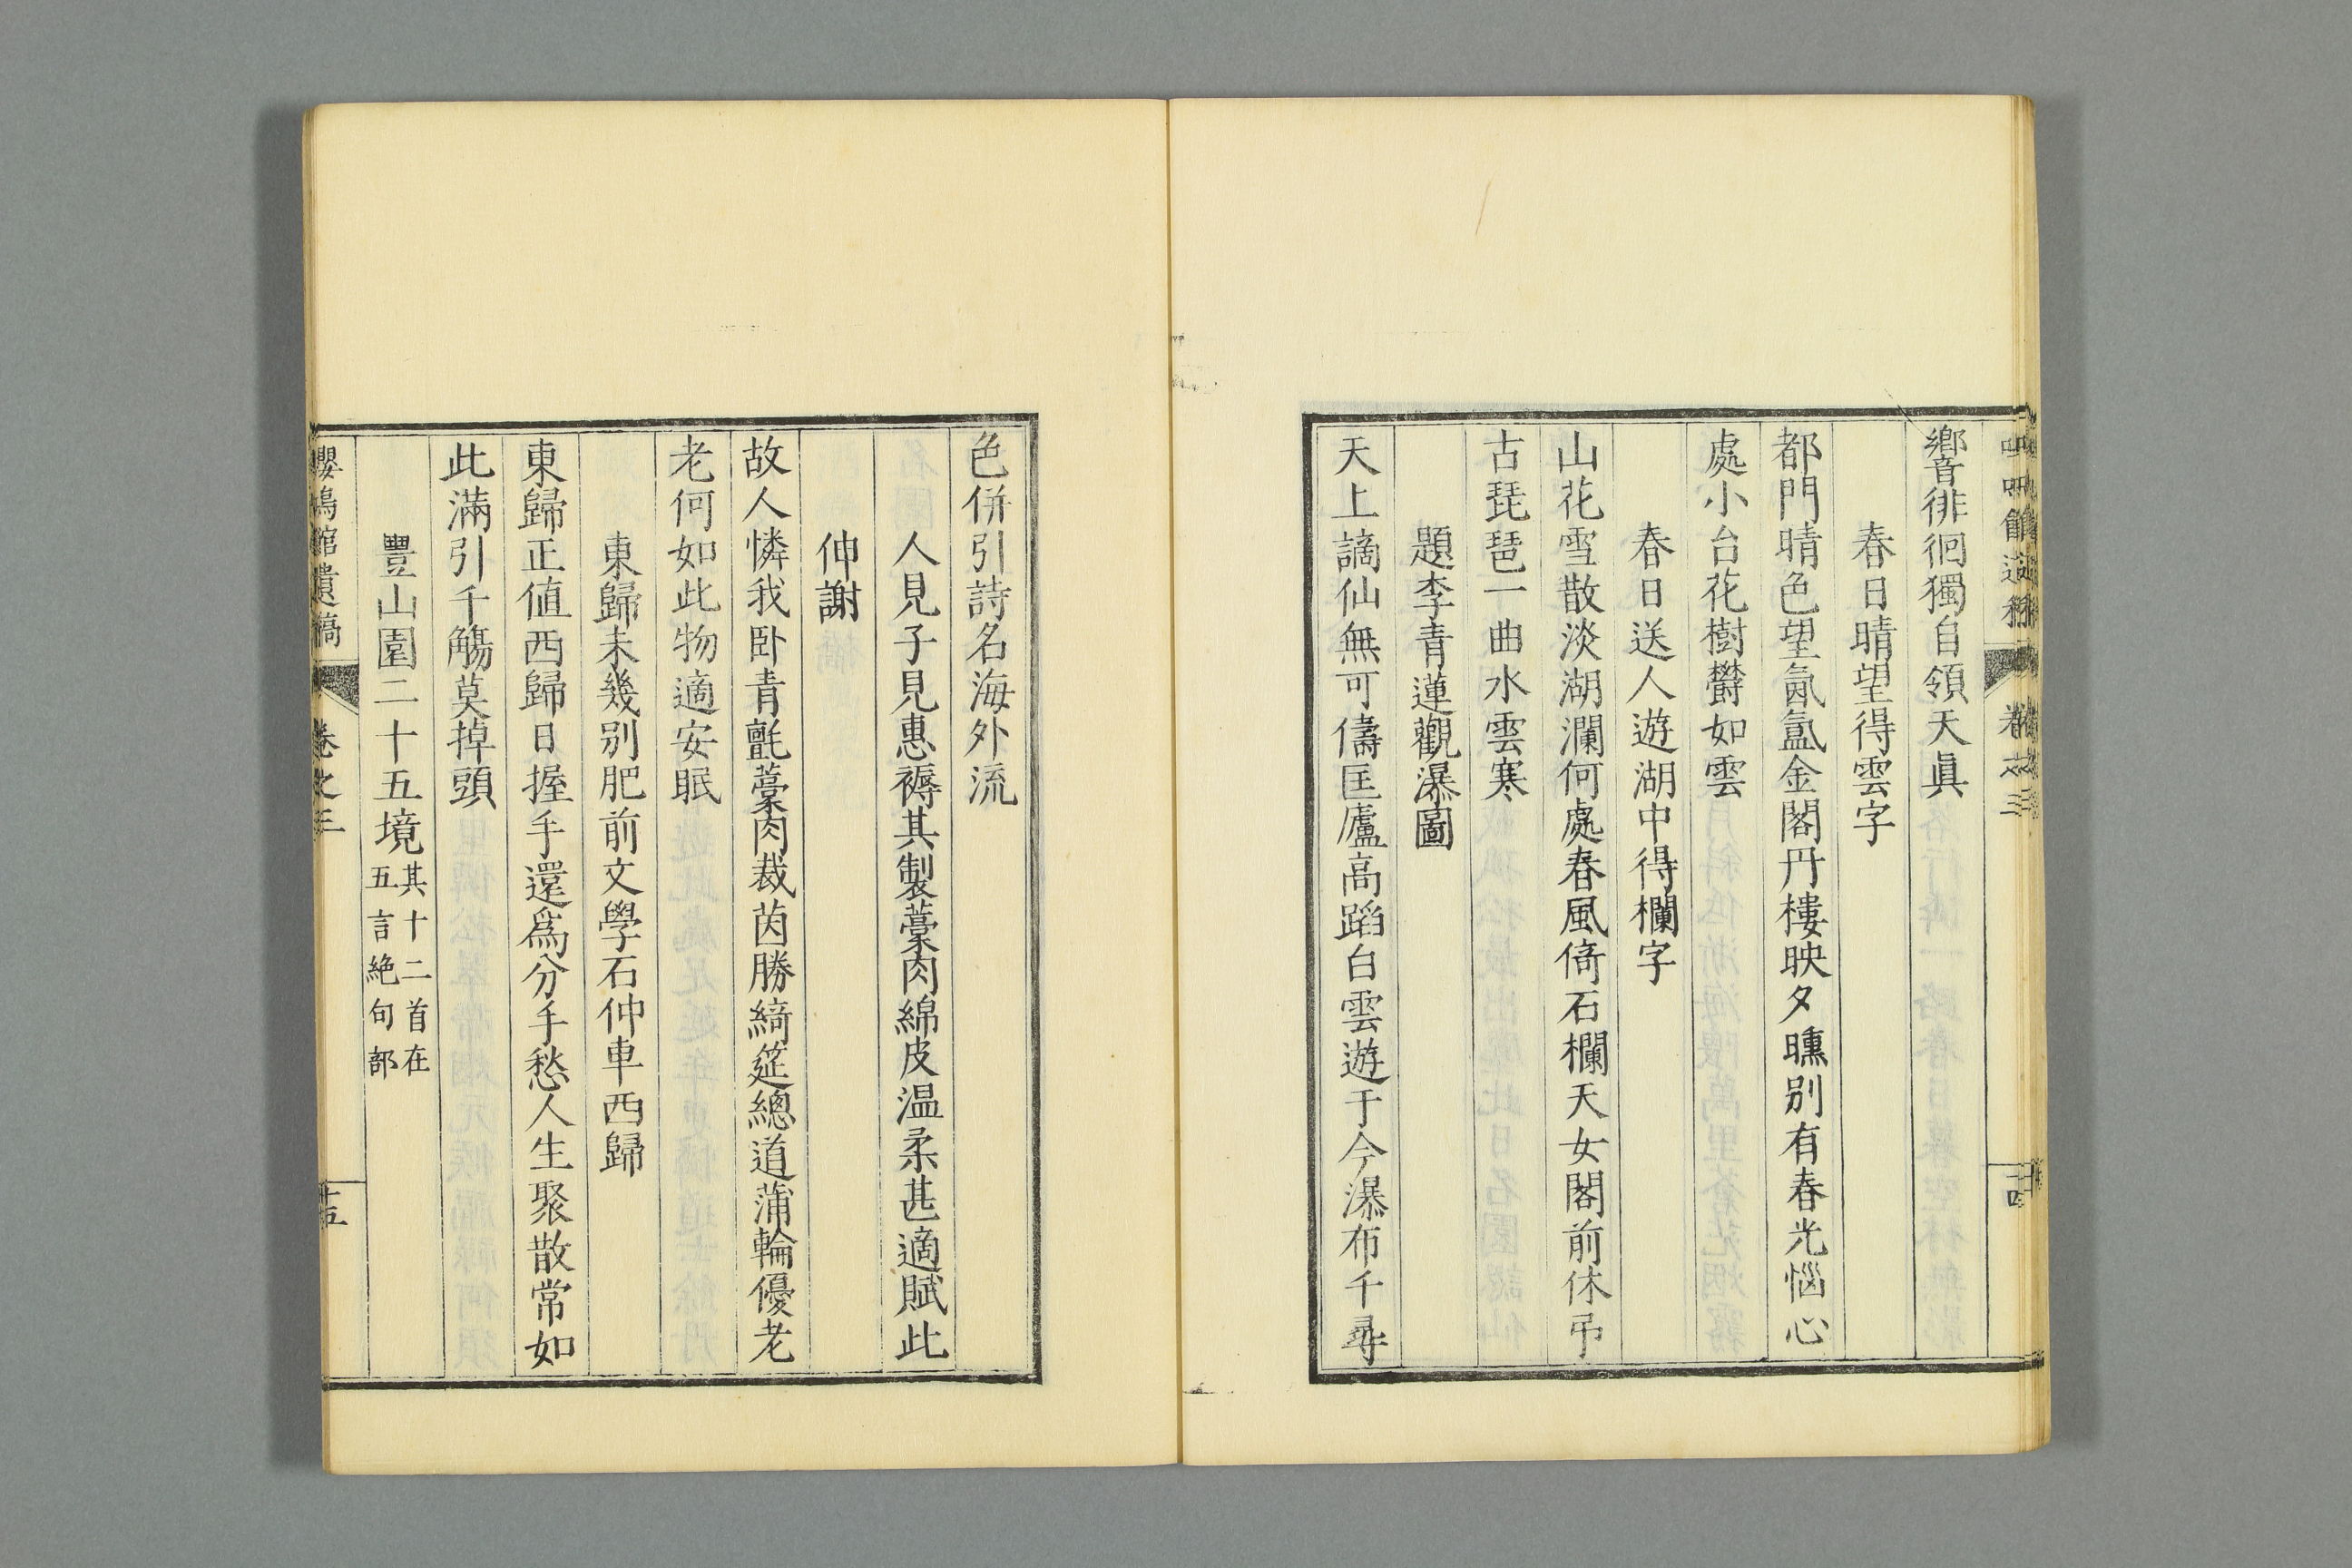 響徘徊獨自領天眞
春日晴望得雲字
都門晴色望氤氳金閣丹樓映夕曛別有春光惱心
處小台花樹欝如雲
春日送人遊湖中得欄字
山花雪散淡湖瀾何處春風倚石欄天女閣前休弔
古琵琶一曲水雲寒
題李青蓮觀瀑圖
天上謫仙無可儔匡廬高蹈白雲遊于今瀑布千尋
色併引詩名海外流
人見子見惠褥其製藁肉綿皮温柔甚適賦此
伸謝
故人憐我卧青氈藁肉裁茵勝綺筵總道蒲輪優老
老何如此物適安眠
東歸未幾別肥前文學石仲車西歸
東歸正値西歸日握手還爲分手愁人生聚散常如
此滿引千觴莫掉頭
豐山園二十五境
其十二首在
五言絶句部
嚶鳴館遺稿
卷之三
十五